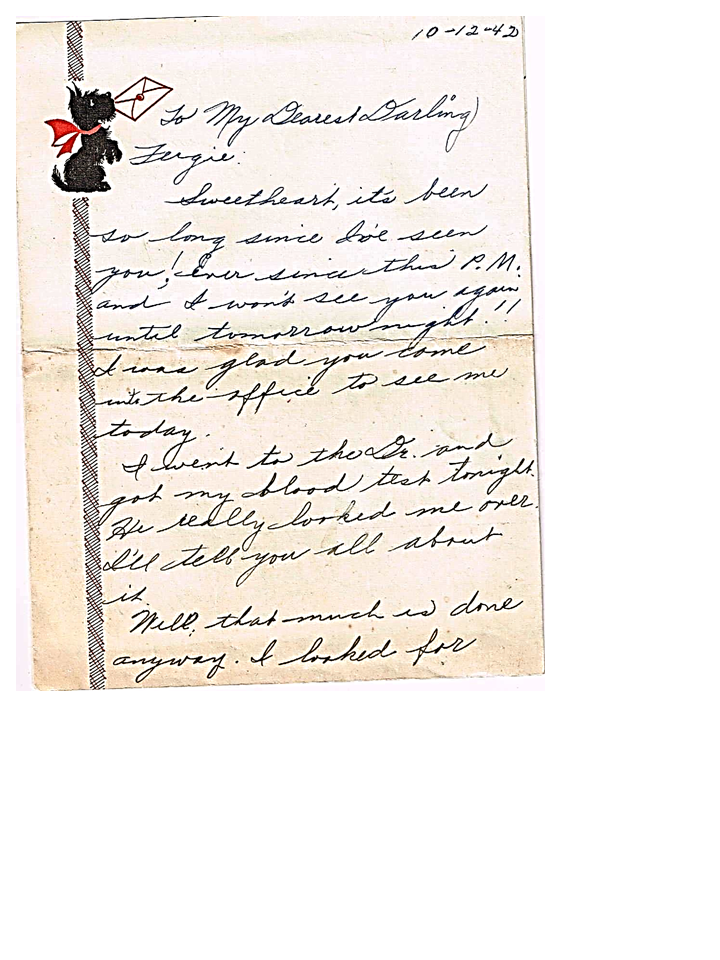 10-12-42
To My Dearest Darling
Fergie:
Sweetheart, it's been
so long since I've seen
you! Ever since this P.M.
and I won't see you again
until tomorrow night!!
I was glad you come
into the office to see me
today.
I went to the Dr. and
got my blood test tonight.
He really looked me over.
I'll tell you all about
it.
Well, that much is done
anyway. I looked for